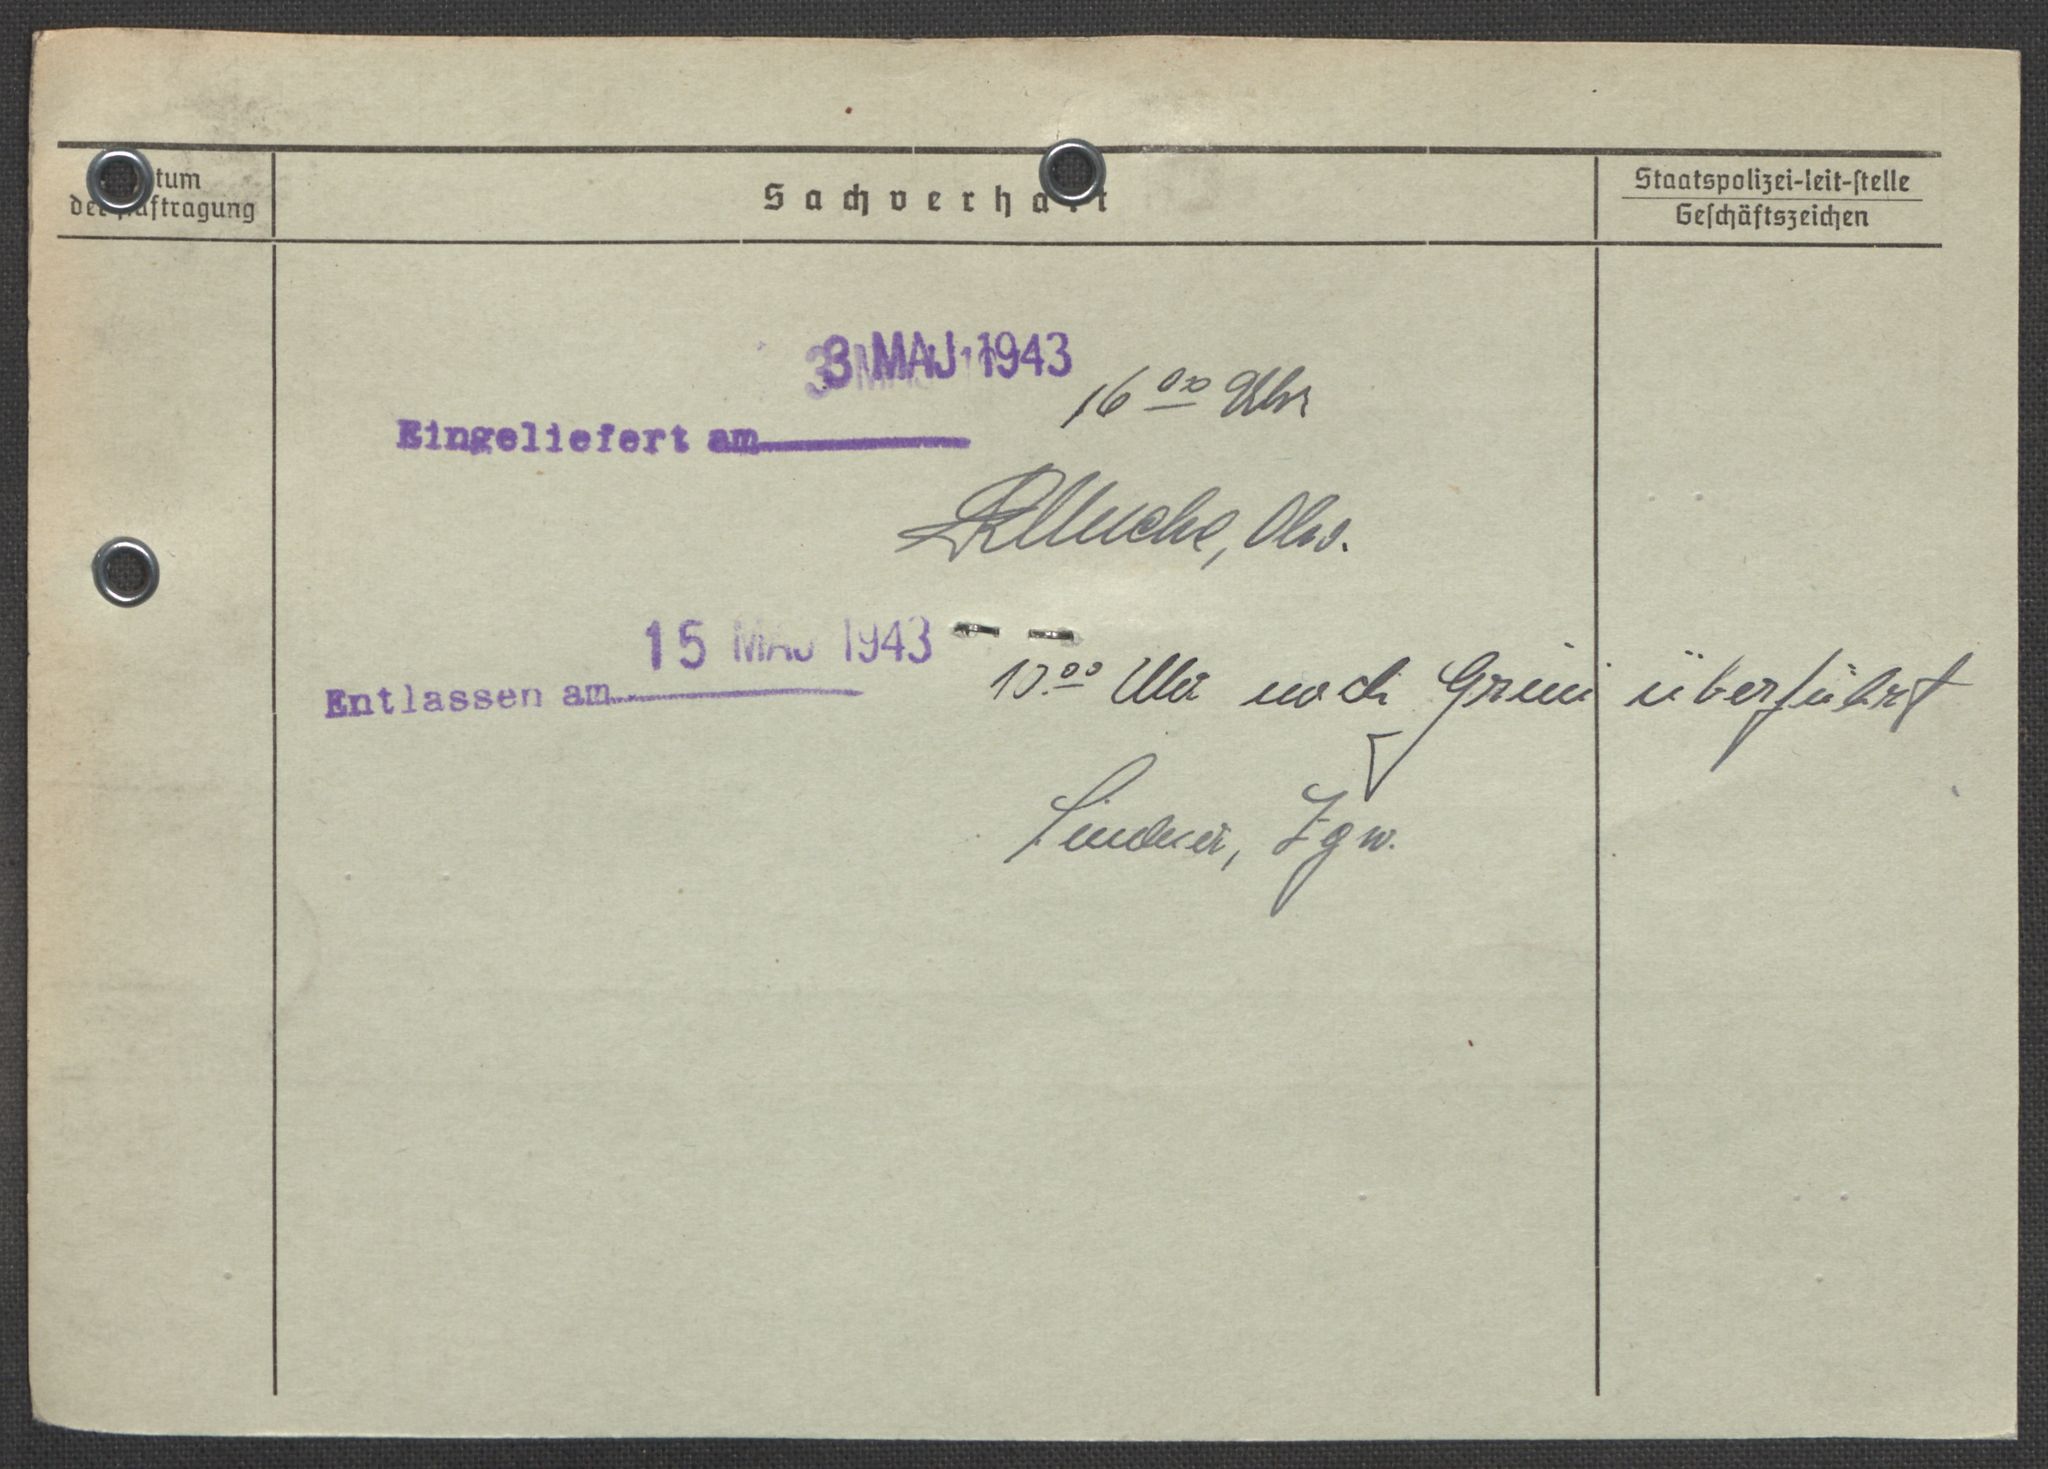 Datum
der Auftragung
Sachverhalt
Staatspolizei-leit-stelle
Geschäftszeichen
3 MAJ 1943
16 00 Uhr
Eingeliefert am
15 MAJ 1943
Entlassen am
00 Uhr nach Grini überführt
Lindner, Zgw.